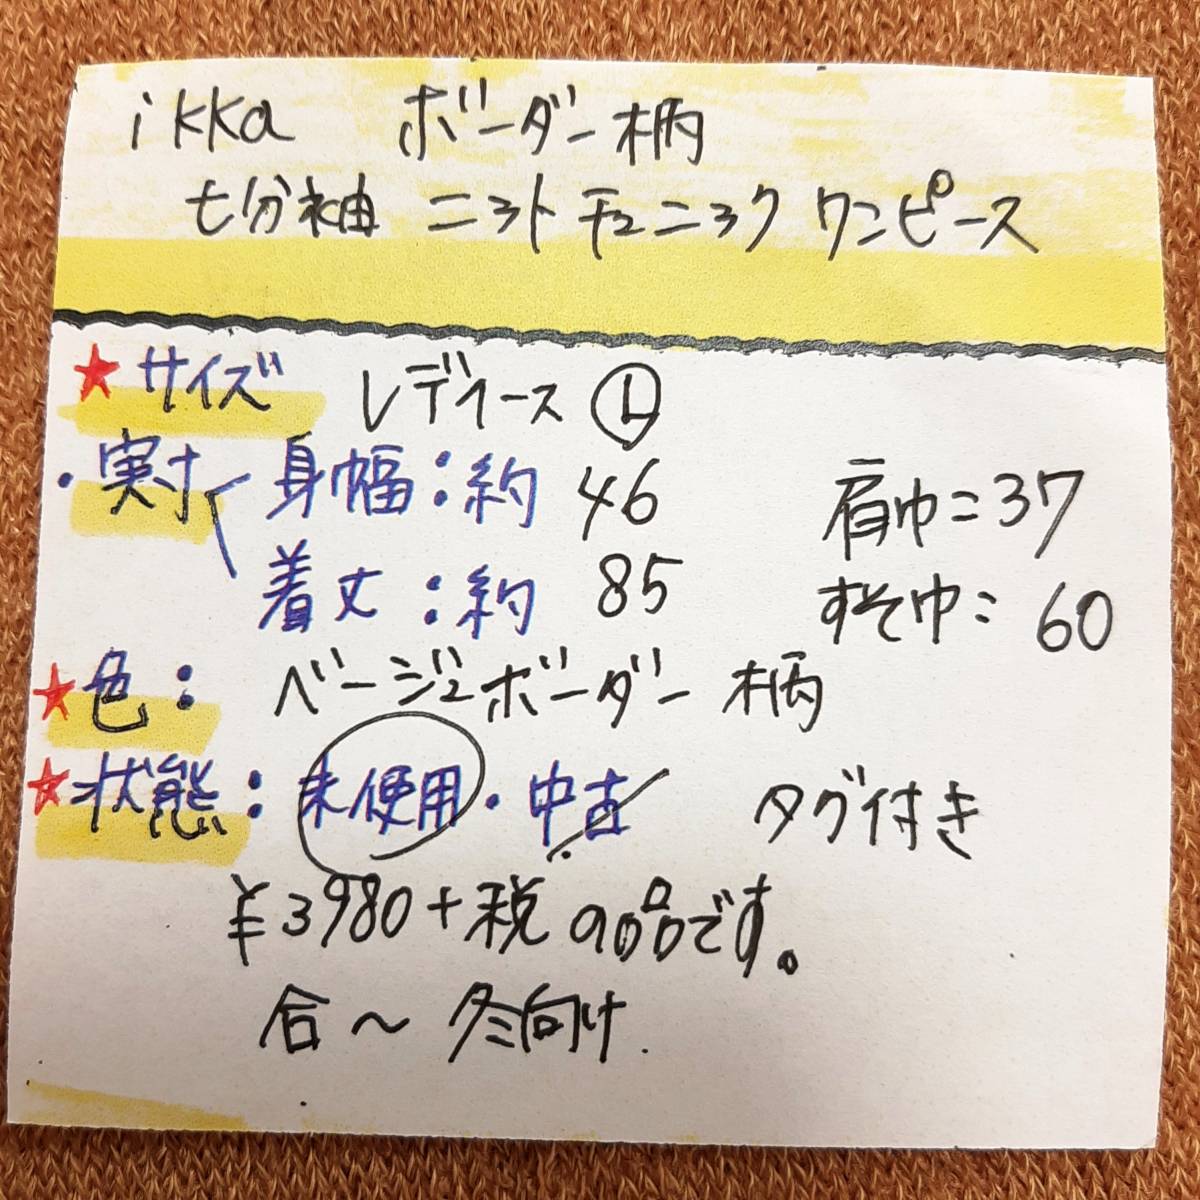 ikka ボーダー柄
七分袖 ニット チュニック ワンピース
★サイズ レディース Ⓛ
・実寸 身幅:約 46 肩巾=37
着丈:約 85 すそ巾= 60
★色: ベージュボーダー 柄
★状態: 未使用・中古 タグ付き
¥3980+税 の品です。
合〜冬向け.